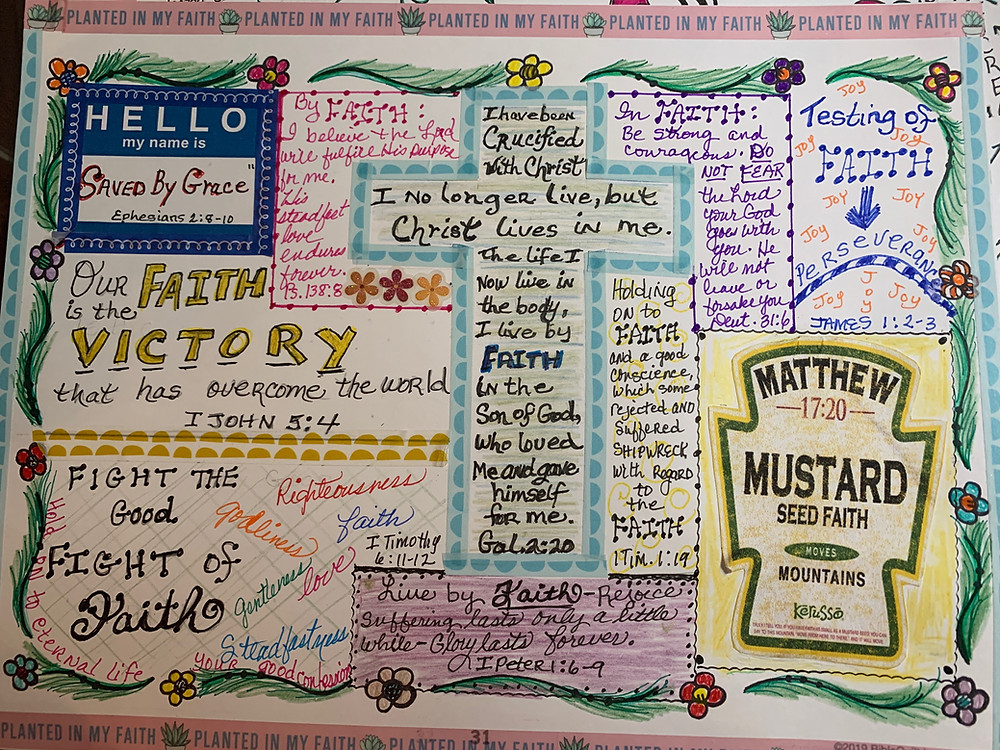 PLANTED IN MY FAITH PLANTED IN MY FAITH PLANTED IN MY FAITH PLANTED IN MY FAITH PLANTED IN MY FAITH
HELLO
my name is
"SAVED By Grace"
Ephesians 2:8-10
By FAITH:
I believe the Lord
will fulfill His purpose
for me.
His
steadfast
love
endures
forever.
Ps.138:8
I have been
Crucified
With Christ
I No longer live, but
Christ lives in me.
The life I
Now live in
the body,
I live by
FAITH
in the
Son of God,
who loved
Me and gave
himself
for me.
Gal. 2:20
In FAITH:
Be strong and
courageous. Do
NOT FEAR
the Lord
your God
goes with
you. He
will not
leave or
forsake you
Deut. 31:6
JOY
Testing of
JOY JOY
FAITH
JOY JOY
JOY JOY
PERSEVERANCE
JOY JOY JOY
JAMES 1:2-3
OUR FAITH
is the
VICTORY
that has overcome the world
I JOHN 5:4
Holding
ON to
FAITH
and a good
conscience,
which some
rejected AND
suffered
SHIPWRECK
with Regard
to
the
FAITH
1 Tim. 1:19
MATTHEW
17:20
MUSTARD
SEED FAITH
MOVES
MOUNTAINS
kerusso
FIGHT THE
Good
FIGHT of
Faith
Righteousness
godliness
faith
I Timothy
6:11-12
Gentleness
love
Steadfastness
Hold on to eternal life
your good confession
Live by Faith-Rejoice
Suffering lasts only a little
while-Glory lasts forever.
I Peter 1:6-9
PLANTED IN MY FAITH PLANTED IN MY FAITH PLANTED IN MY FAITH PLANTED IN MY FAITH PLANTED IN MY FAITH
31